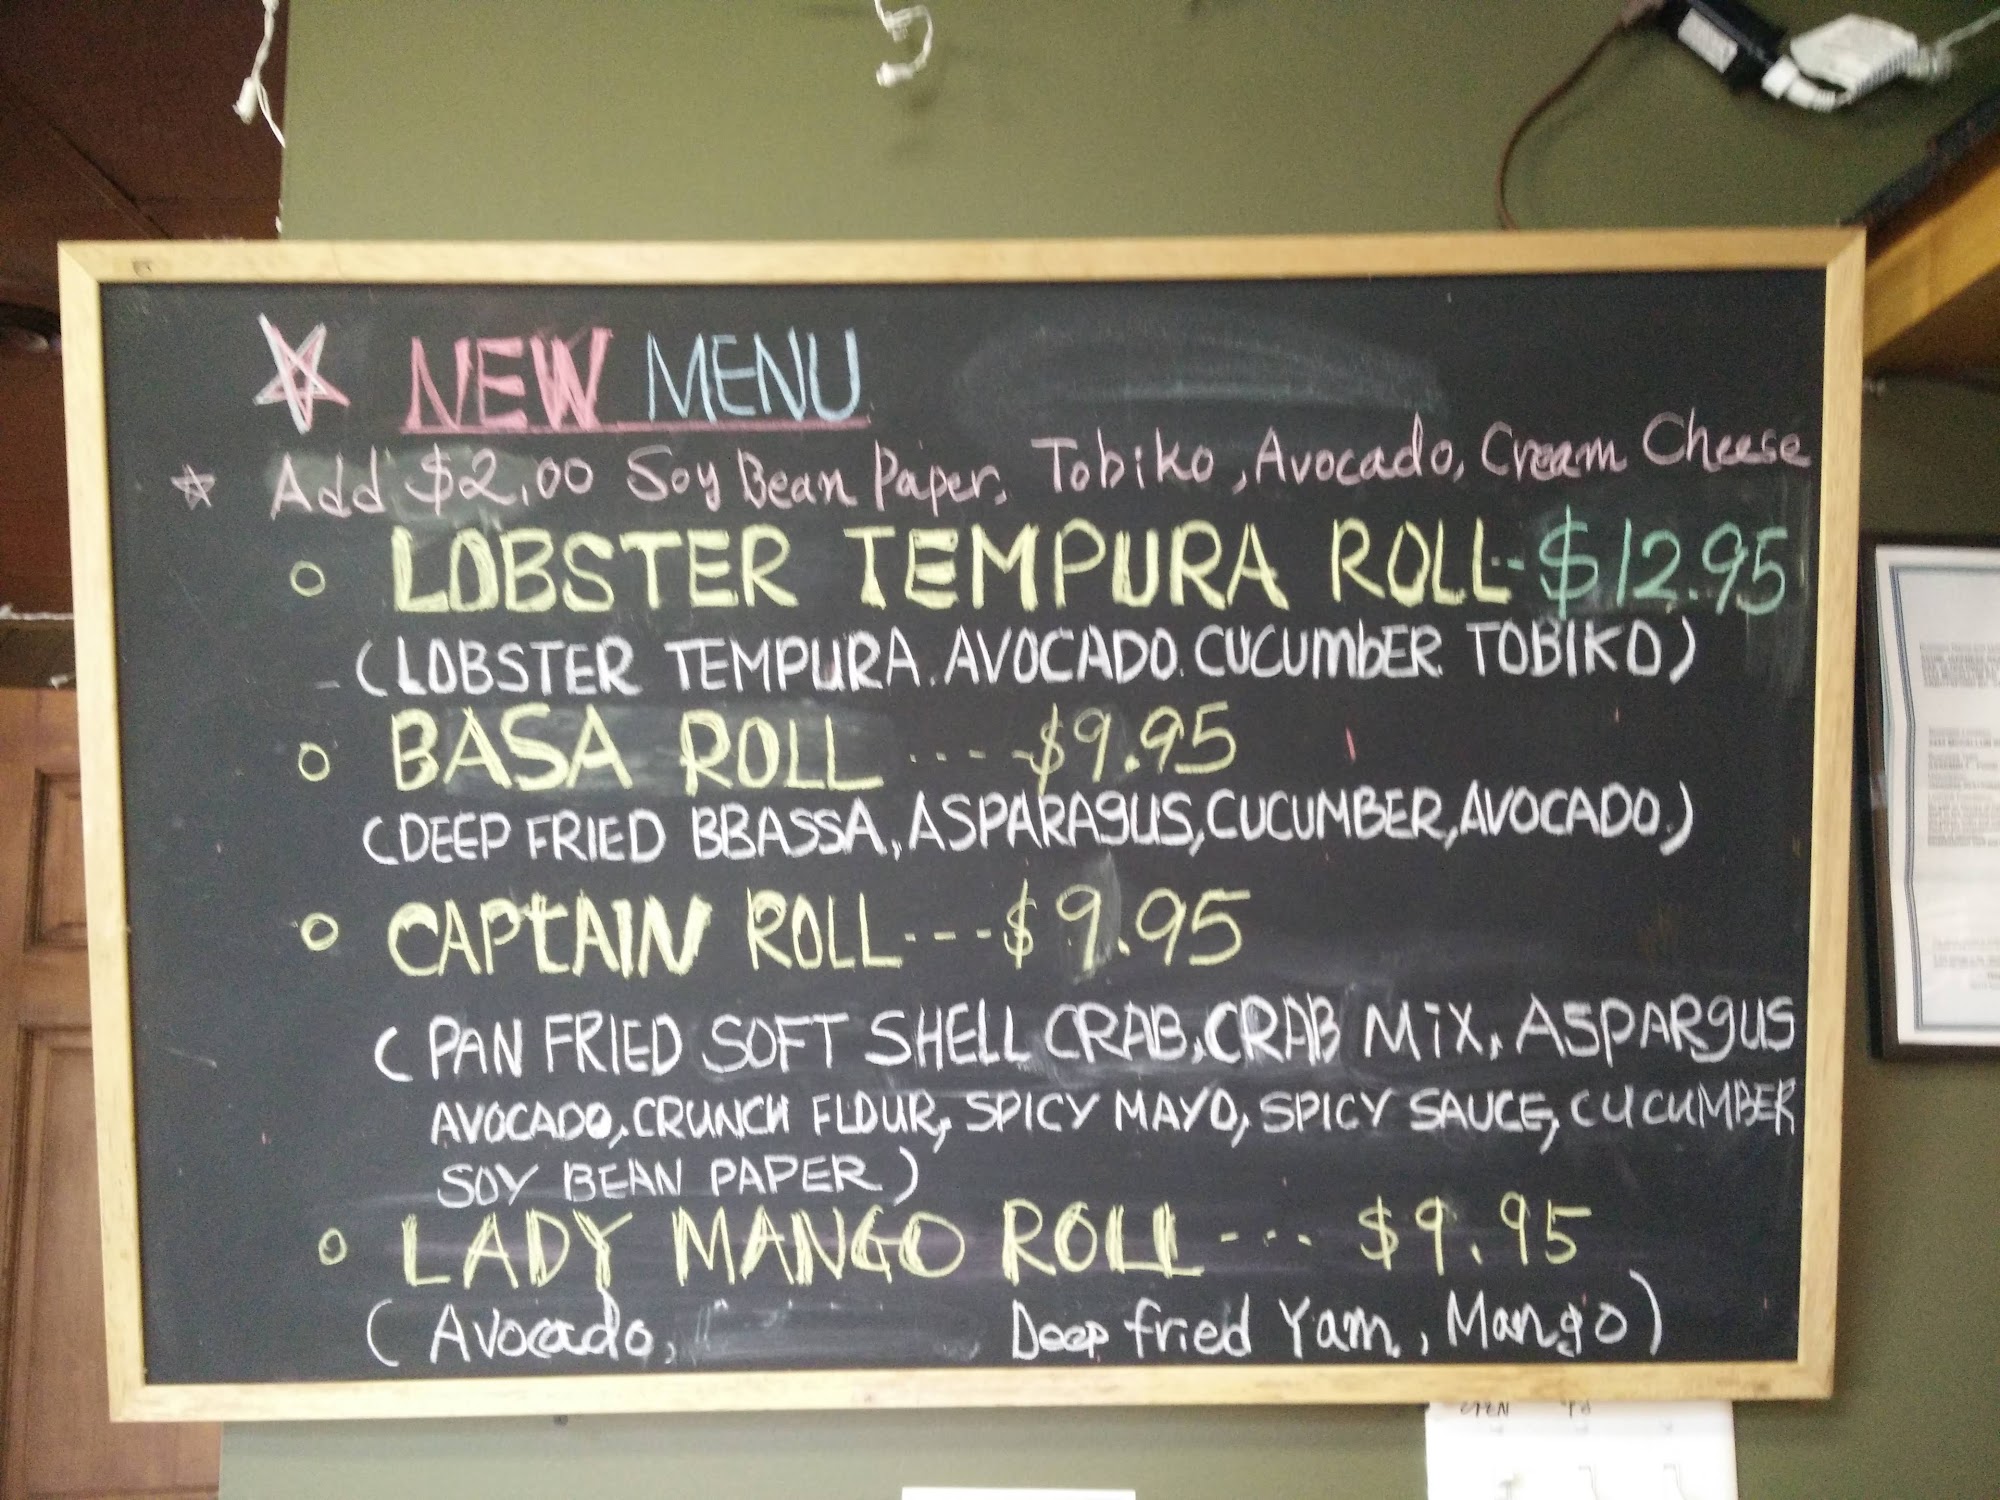 NEW MENU
Add $2.00 Soy Bean Paper, Tobiko, Avocado, Cream Cheese
LOBSTER TEMPURA ROLL--$12.95
(LOBSTER TEMPURA. AVOCADO. CUCUMbER. TOBIKO)
BASA ROLL ----$9.95
(DEEP FRIED BBASSA, ASPARAgUS, CUCUMBER, AVOCADO,)
CAPtAIN ROLL---$9.95
(PAN FRIED SOFT SHELL CRAB, CRAB MiX, ASPARgUS
AVOCADO, CRUNCH FLOUR, SPICY MAYO, SPICY SAUCE, CUCUMBER
SOY BEAN PAPER)
LADY MANGO ROLL --- $9.95
(Avocado, Deep fried Yam, Mango)
OPEN